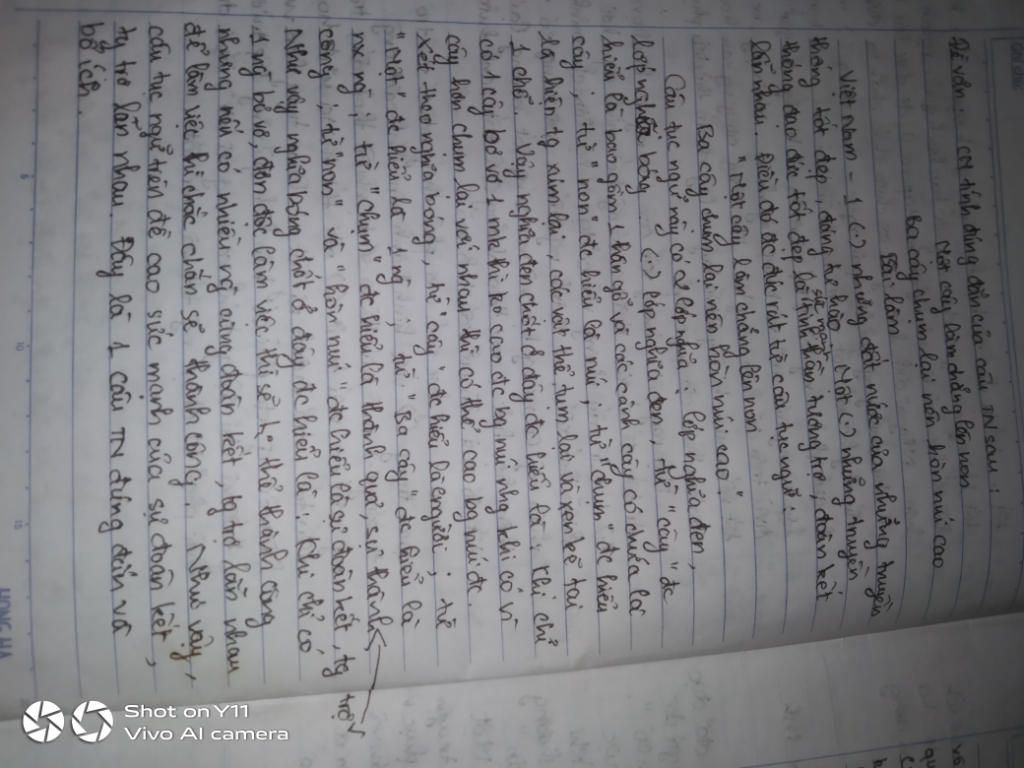 Đề văn: CM tính đúng đắn của câu TN sau:
Một cây làm chẳng lên non
Ba cây chụm lại nên hòn núi cao
Bài làm
Việt Nam - 1 (.) những đất nước của những truyền
thống tốt đẹp, đáng tự hào. Một (.) những truyền
thống đạo đức tốt đẹp là tinh thần tương trợ, đoàn kết
lẫn nhau. Điều đó đc đúc rút từ câu tục ngữ:
"Một cây làm chẳng lên non
Ba cây chụm lại nên hòn núi cao"
Câu tục ngữ này có 2 lớp nghĩa: lớp nghĩa đen,
lớp nghĩa bóng. (.) lớp nghĩa đen, từ "cây" đc
hiểu là bao gồm 1 thân gỗ và các cành cây có chứa lá
cây; từ "non" đc hiểu là núi; từ "chụm" đc hiểu
là hiện tg túm lại, các vật thể tụm lại và xen kẽ tại
1 chỗ. Vậy nghĩa đen chốt ở đây đc hiểu là: Khi chỉ
có 1 cây bơ vơ 1 mk thì ko cao đc bg núi nhg khi có
cây hơn chụm lại với nhau thì có thể cao bg núi đc.
Xét theo nghĩa bóng, từ "cây" đc hiểu là con người; từ
"Một" đc hiểu là 1 ng; từ "Ba cây" đc hiểu là
nx ng; từ "chụm" đc hiểu là thành quả, sự thành
công; từ "non" và "hòn núi" đc hiểu là sự đoàn kết, tg trợ
Như vậy nghĩa bóng chốt ở đây đc hiểu là: Khi chỉ có
1 ng bơ vơ, đơn độc làm việc thì sẽ k. thể thành công
nhưng nếu có nhiều ng cùng đoàn kết, tg trợ lẫn nhau
để làm việc thì chắc chắn sẽ thành công. Như vậy,
câu tục ngữ trên đề cao sức mạnh của sự đoàn kết,
tg trợ lẫn nhau. Đây là 1 câu TN đúng đắn và
bổ ích.
HONG HA
Shot on Y11
Vivo AI camera